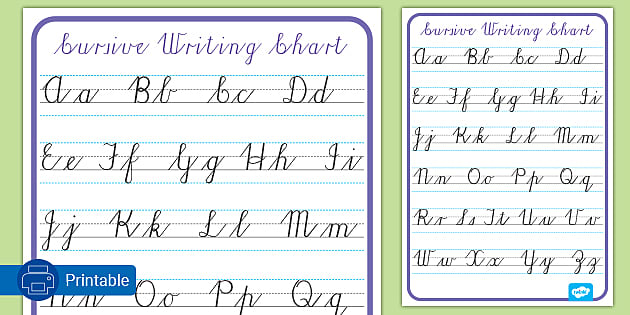 Cursive Writing Chart
Aa Bb Cc Dd
Ee Ff Gg Hh Ii
Jj Kk Ll Mm
Nn Oo Pp Qq
Printable
Cursive Writing Chart
Aa Bb Cc Dd
Ee Ff Gg Hh Ii
Jj Kk Ll Mm
Nn Oo Pp Qq
Rr Ss Tt Uu Vv
Ww Xx Yy Zz
twinkl